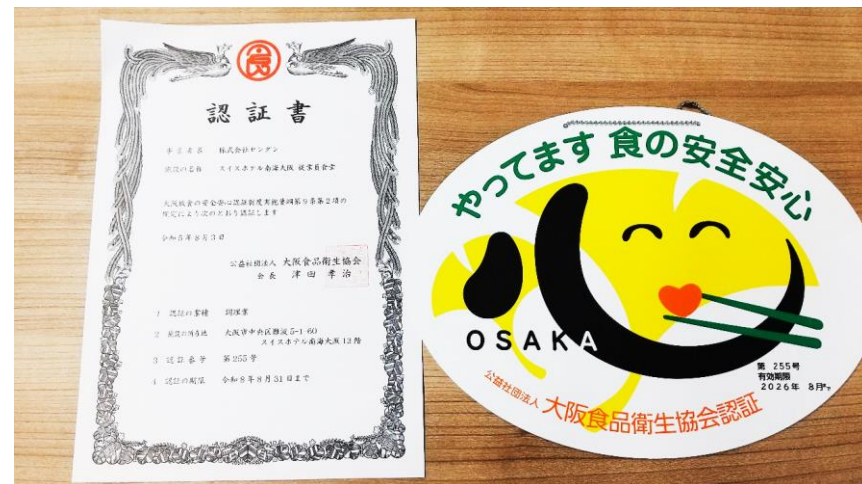 食
認証書
事業者名 株式会社ヤシデン
施設の名称 スイスホテル南海大阪 従業員食堂
大阪版食の安全安心認証制度実施要綱第9条第2項の
規定により次のとおり認証します
令和5年8月31日
公益社団法人 大阪食品衛生協会
会長 津田孝治
1 認証の業種 調理業
2 施設の所在地 大阪市中央区難波5-1-60
スイスホテル南海大阪13階
3 認証番号 第255号
4 認証の期限 令和8年8月31日まで
やってます 食の安全安心
OSAKA
第 255号
有効期限
2026年 8月まで
公益社団法人 大阪食品衛生協会認証